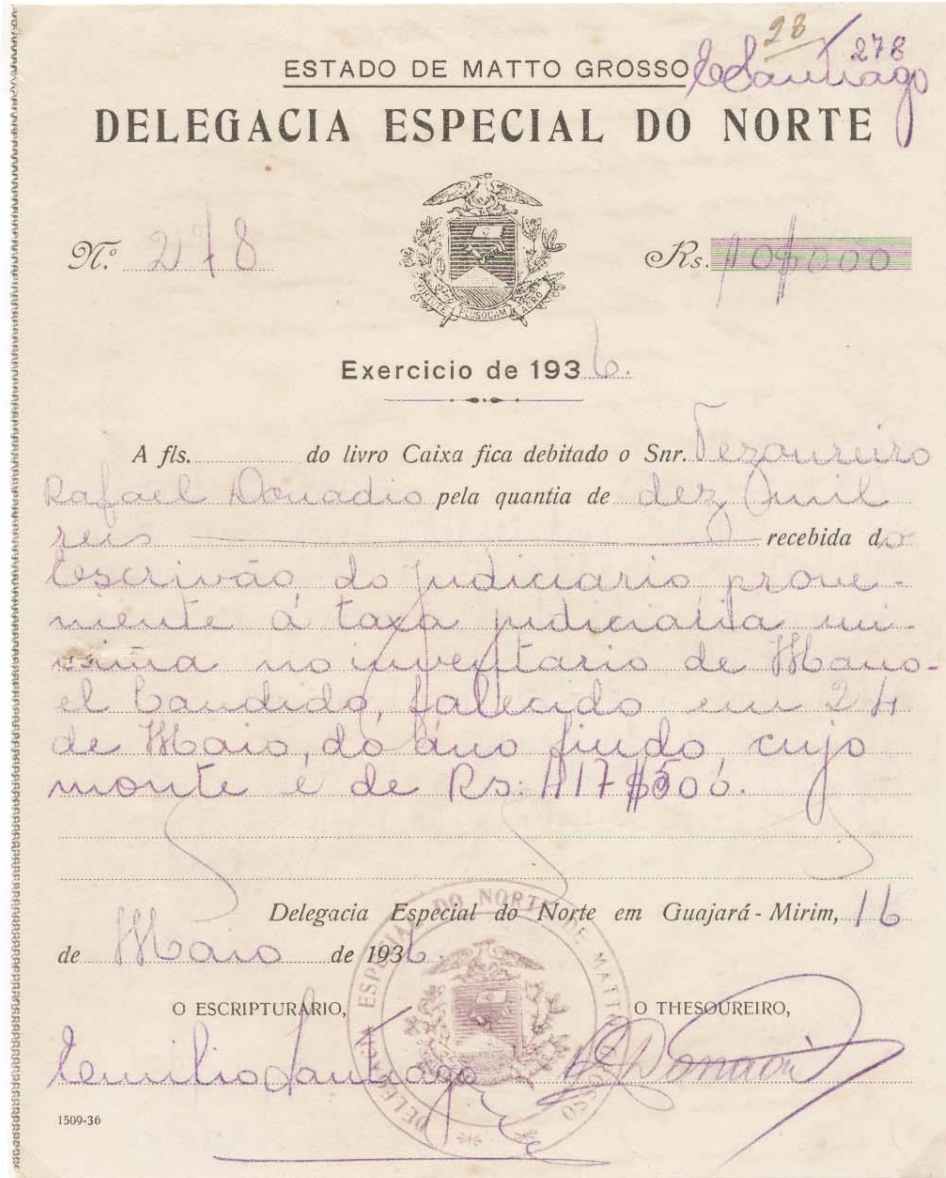 28
278
ESTADO DE MATTO GROSSO ESantiago
DELEGACIA ESPECIAL DO NORTE
VIRTUTE PLUSQUAM AURO
N.º 278 Rs. 10$000
Exercicio de 1936.
A fls. do livro Caixa fica debitado o Snr. Tezoureiro
Rafael Donadio pela quantia de dez mil
reis recebida do
Escrivão do judiciario prove-
niente á taxa judiciaria mi-
nima no inventario de Mano-
el Candido, falecido em 24
de Maio, do âno findo, cujo
monte é de Rs: 417$500.
Delegacia Especial do Norte em Guajará-Mirim, 16
de Maio de 1936.
DELEGACIA ESPECIAL DO NORTE DE MATTO GROSSO
O ESCRIPTURÁRIO, O THESOUREIRO,
Emilio Santiago
1509-36